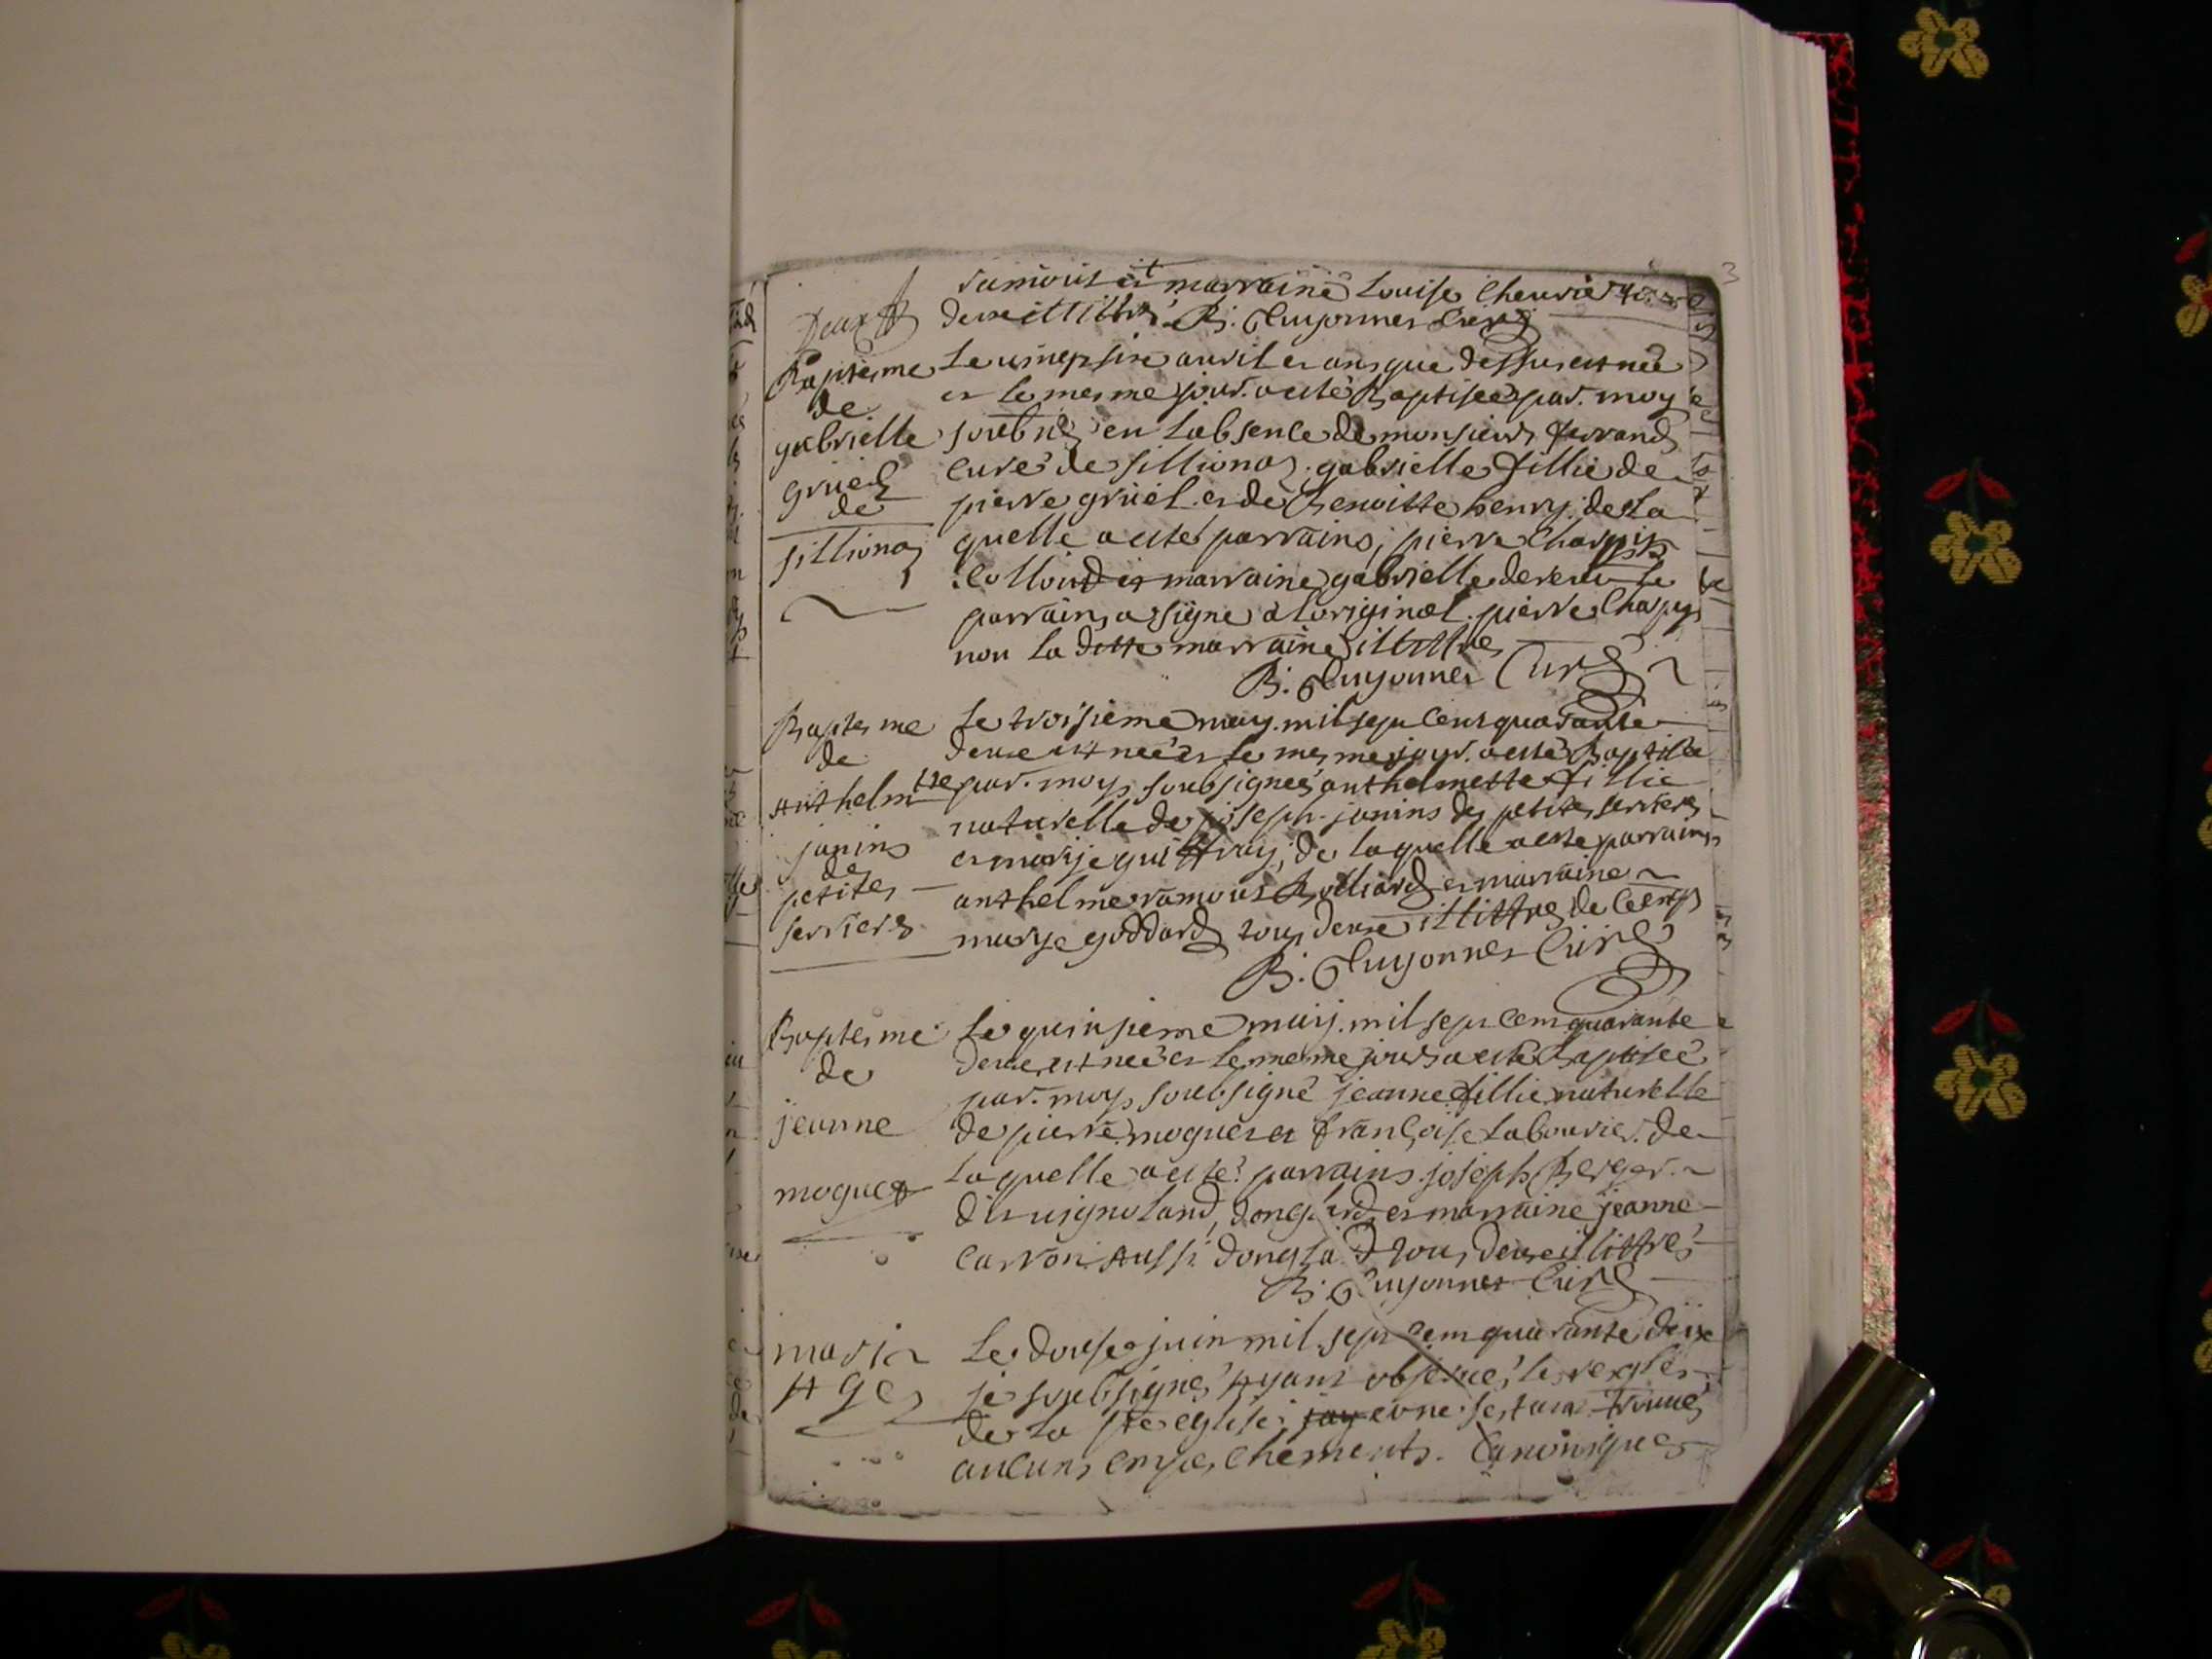 ramous et marraine Louise Chevrier
deux illittres B. Guyonnet Curé
Baptesme de gabrielle gruel de sillionaz
Le vingt sixe avril et an que dessus est née
et le mesme jour a esté Baptisée par moy
soubne en Labsence de monsieur ferrand
Curé de sillionaz gabrielle fillie de
pierre gruel et de Benoitte henry de La
quelle a esté parrains pierre Charpy
Collioud et marraine gabrielle le
parrains a signe a Loriginal pierre Charpy
non La ditte marraine illittre
B. Guyonnet Curé
Baptesme de Anthelmtte janins de petites serriers
Le troisieme may mil sept Cent quarante
deux est neé et le mesme jour a esté Baptisée
par moy soubsigneé anthelmette fillie
naturelle de joseph janins de petites serrieres
et marie guiffray de laquelle a este parrains
anthelme ramous Rolliard et marraine
marye goddard tous deux illittres de Ceens
B. Guyonnet Curé
Baptesme de jeanne moguet
Le quinsieme may mil sept Cent quarante
deux est neé et le mesme jours a esté Baptiseé
par moy soubsigné jeanne fillie naturelle
de pierre moguet et françoise Labourier de
Laquelle a esté parrains joseph Berger
dit vignoland et marraine jeanne
Carron Aussi tous deux illittré
B. Guyonnet Curé
mariAge
Le douse juin mil sept Cent quarante deux
je soubsigné Ayant observé les regles
de La ste eglise jay et ne sestant trouvé
aucuns empeschements Canonique